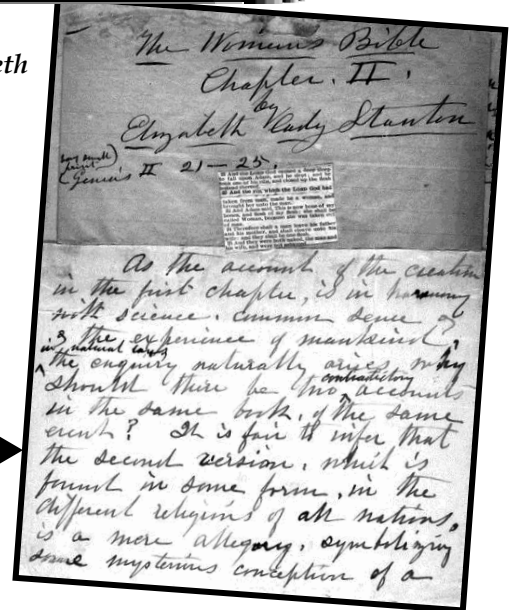 eth
The Woman's Bible
Chapter. II.
by
Elizabeth Cady Stanton
(Genesis II 21—25.
taken from man, made he a woman, and
brought her unto the man.
As the account of the creation
in the first chapter, is in harmony
with science, common sense &
& the experience of mankind,
in natural laws
the enquiry naturally arises, why
contradictory
should there be two accounts
in the same book, of the same
event? It is fair to infer that
the second version, which is
found in some form, in the
different religions of all nations,
is a mere allegory, symbolizing
some mysterious conception of a